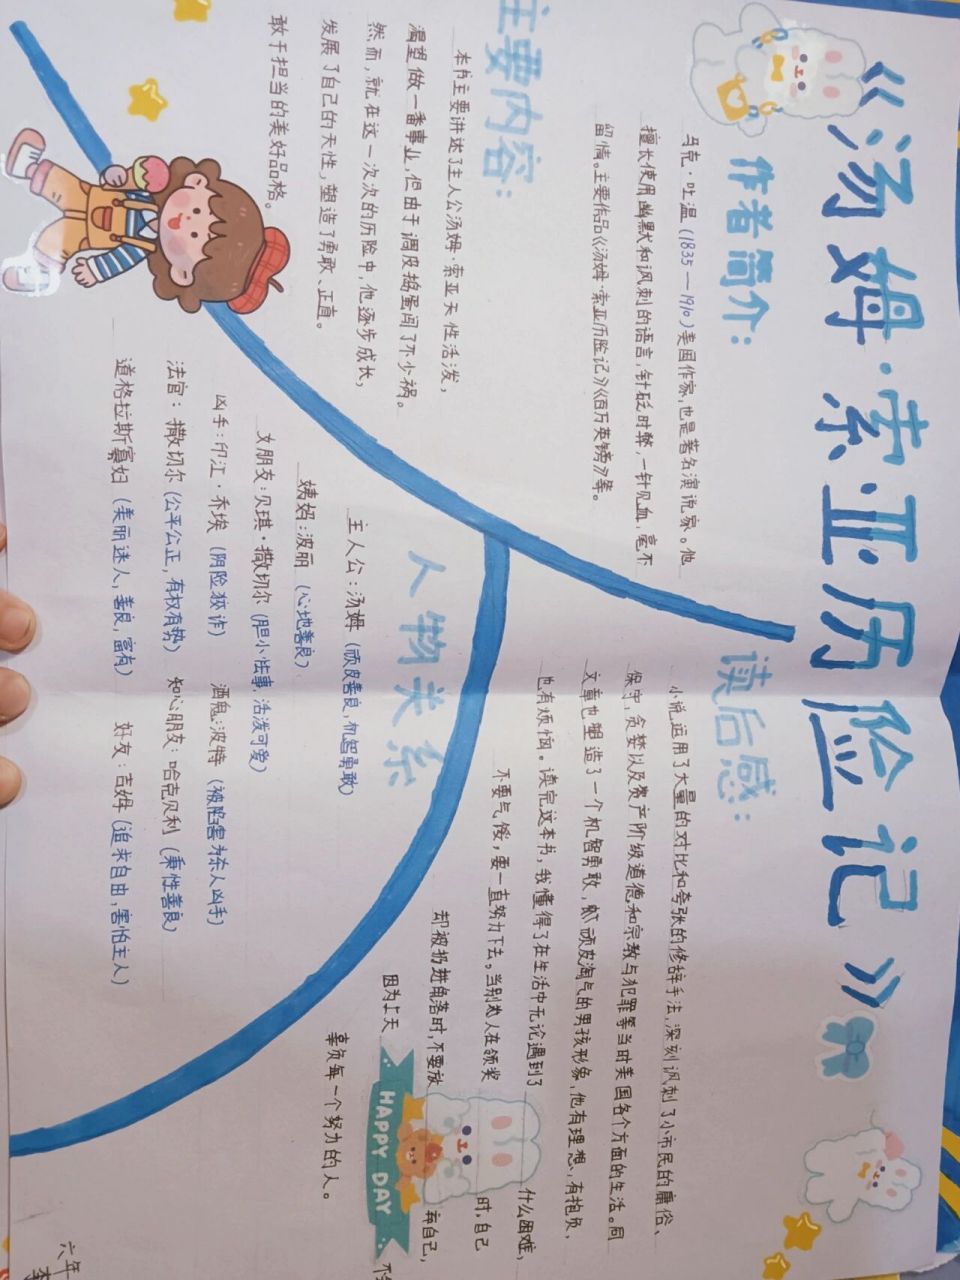 《汤姆·索亚历险记》
作者简介：
马克·吐温（1835—1910）美国作家，也是著名演说家。他
擅长使用幽默和讽刺的语言，针砭时弊，一针见血，毫不
留情。主要作品《汤姆·索亚历险记》《百万英镑》等。
主要内容：
本书主要讲述了主人公汤姆·索亚天性活泼，
渴望做一番事业，但由于调皮捣蛋闯了不少祸。
然而，就在这一次次的历险中，他逐步成长，
发展了自己的天性，塑造了勇敢、正直。
敢于担当的美好品格。
读后感：
小说运用了大量的对比和夸张的修辞手法，深刻讽刺了小市民的庸俗、
保守，贪婪以及资产阶级道德和宗教与犯罪等当时美国各个方面的生活。同
文章也塑造了一个机智勇敢，顽皮淘气的男孩形象，他有理想，有抱负，
也有烦恼。读完这本书，我懂得了在生活中无论遇到了什么困难，
不要气馁，要一直努力下去。当别人在领奖时，自己
却被扔进角落时，不要放弃自己，
因为上天
辜负每一个努力的人。
HAPPY DAY
人物关系
主人公：汤姆（顽皮善良，机智勇敢）
姨妈：波丽（心地善良）
女朋友：贝琪·撒切尔（胆小怯事，活泼可爱）
凶手：印江·乔埃（阴险狡诈） 酒鬼：波特（被陷害为杀人凶手）
法官：撒切尔（公平公正，有权有势） 知心朋友：哈克贝利（秉性善良）
道格拉斯寡妇（美丽迷人，善良，富有） 好友：吉姆（追求自由，害怕主人）
六年